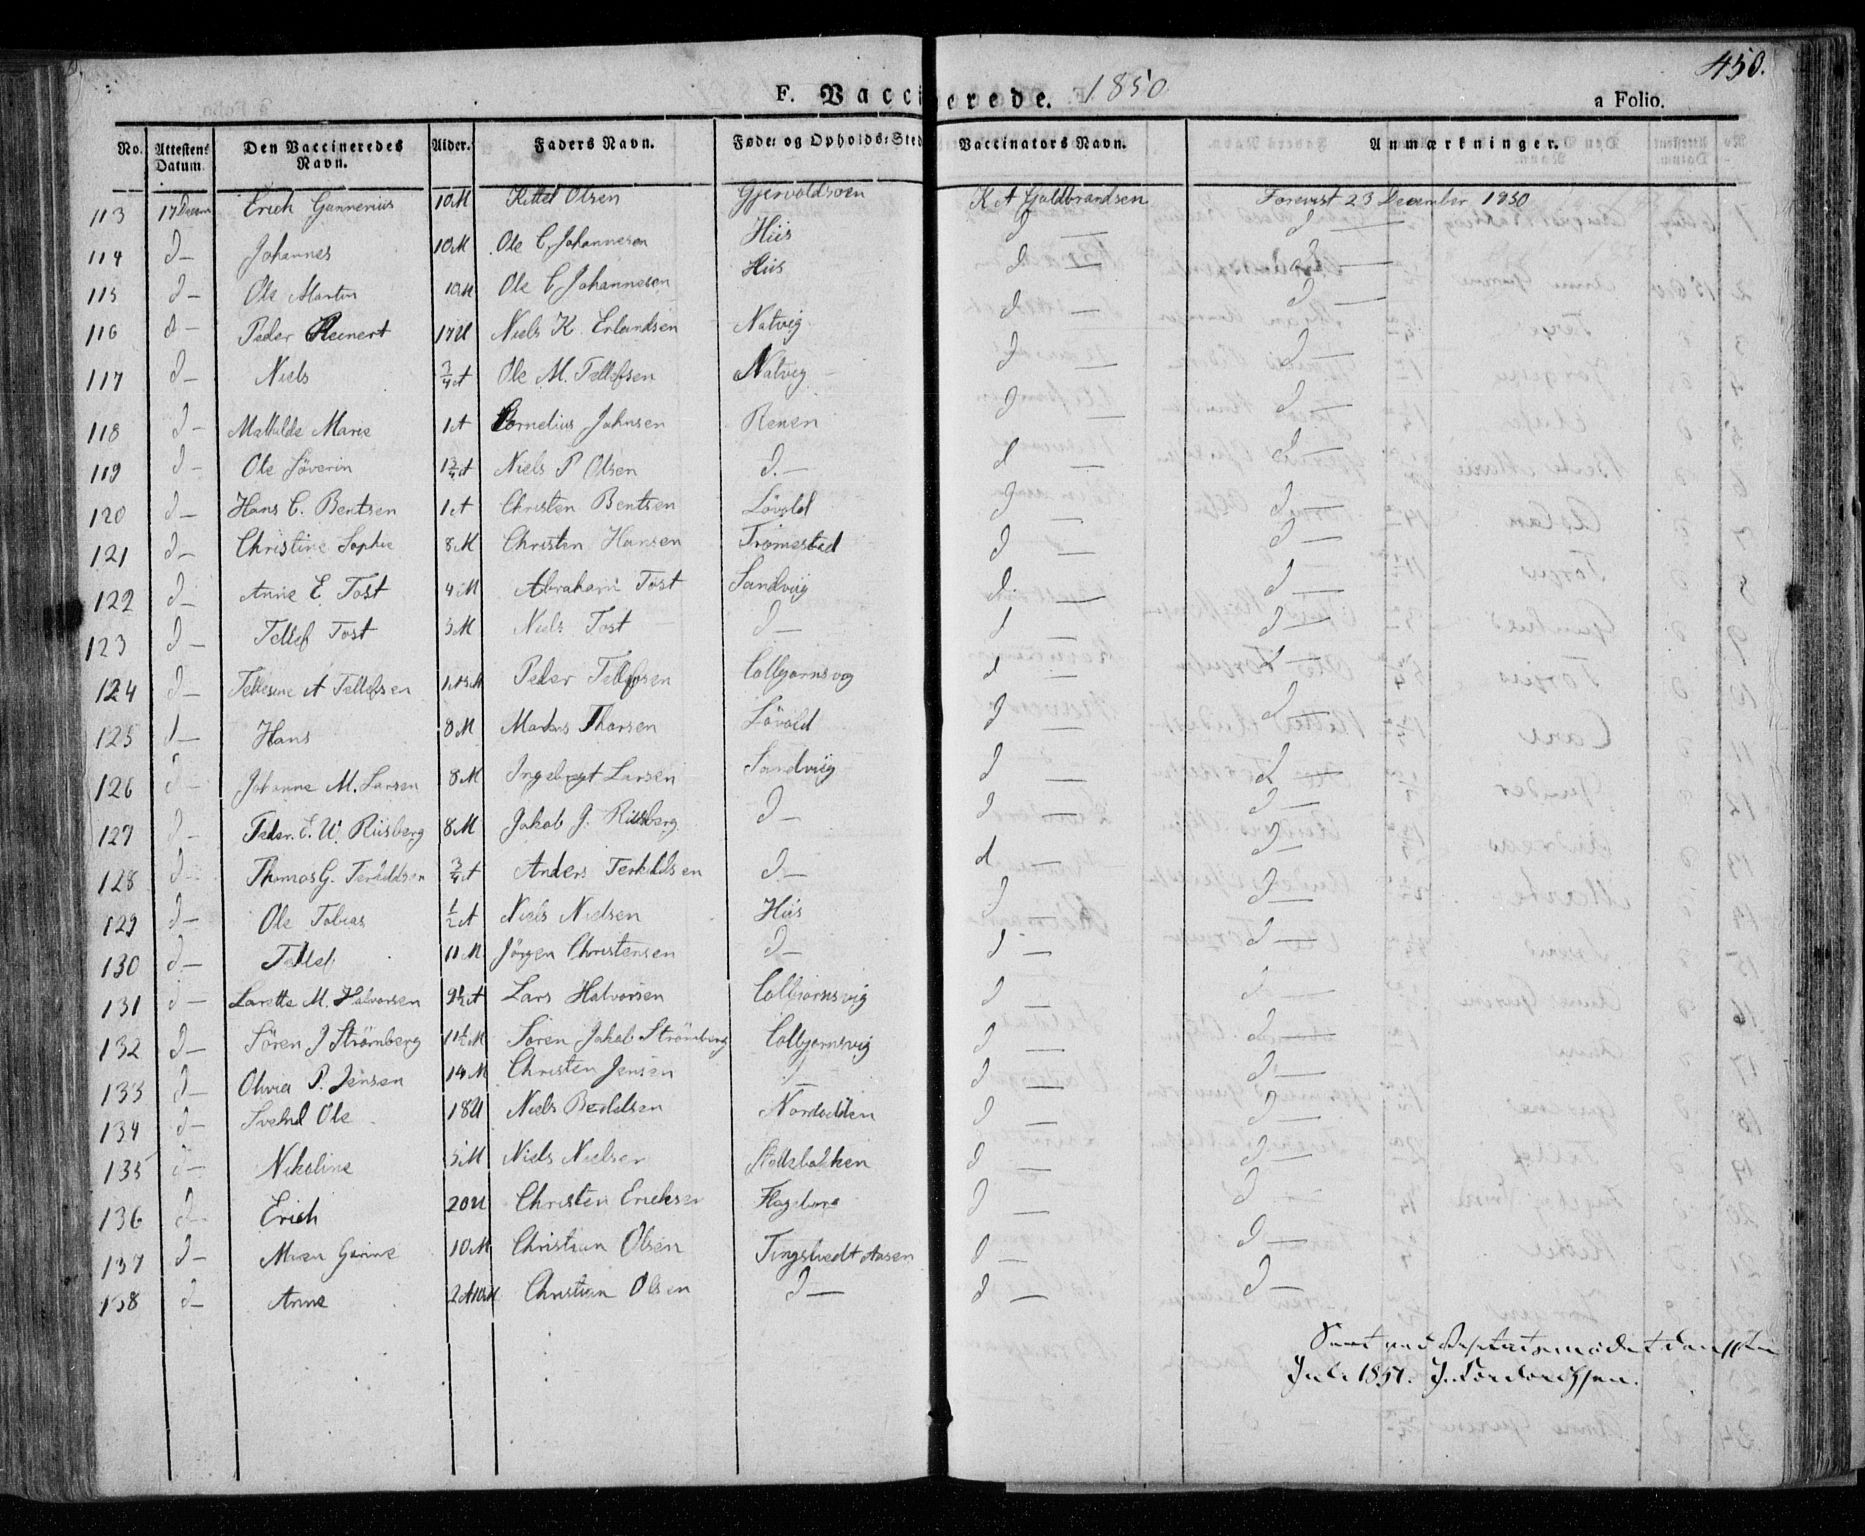 450.
F. Vaccinerede. 1850
a Folio.
No. Attestens Datum. Den Vaccineredes Navn. Alder. Faders Navn. Føde- og Opholds-Sted Vaccinators Navn. Anmærkninger.
113 17 Decem Erich Gunnerius 10M Kittel Olsen K A Guldbrandsen Forevist 23 December 1850
114 d— Johannes 10M Ole C Johannesen Hiis d — d —
115 d— Ole Martin 10M Ole C Johannesen Hiis d — d —
116 d— Peder Reinert 17U Niels K. Erlandsen Natvig d — d —
117 d— Niels 3/4A Ole M. Tellefsen Natvig d — d —
118 d— Mathilde Marie 1A Cornelius Johnsen Renen d — d —
119 d— Ole Søverin Niels P Olsen d.— d — d —
120 d— Hans C. Bentsen 1A Christen Bentsen Løvold d — d —
121 d— Christine Sophie 8M Christen Hansen Tromestad d — d —
122 d— Anne E. Tost 4M Abraham Tost Sandviig d — d —
123 d— Tellef Tost 5M Niels Tost d— d — d —
124 d— Tellesine A Tellefsen Peder Tellefsen Colbjornsvig d — d —
125 d— Hans 8M Thorsen Løvold d — d —
126 d— Johanne M. Larsen 8M Ingebregt Larsen Sandviig d — d —
127 d— Peder. E. W. Riisberg 8M Jakob J. Riisberg d— d — d —
128 d— Thomas G. Terkildsen 3/4A Anders Terkildsen d— d — d —
129 d— Ole Tobias 1/2A Niels Nielsen Hiis d — d —
130 d— Tellef 11M Jörgen Christensen d— d — d —
131 d— Larette M. Halvorsen Lars Halvorsen Colbjornsvig d — d —
132 d— Sören J Strömberg 11½M Soren Jakob Strömberg Colbjornsvig d — d —
133 d— Olivia P. Jensen 14M Christen Jensen d— d — d —
134 d— Ole 18U Niels Nordodden d — d —
135 d— Nikoline 5M Niels Nielsen d — d —
136 d— Erich 20U Christen Ericksen d — d —
137 d— Gurine 10M Christian Olsen Tingstvedt Aasen d — d —
138 d— Anne 2A10M Christian Olsen d— d — d —
Juli 1851.